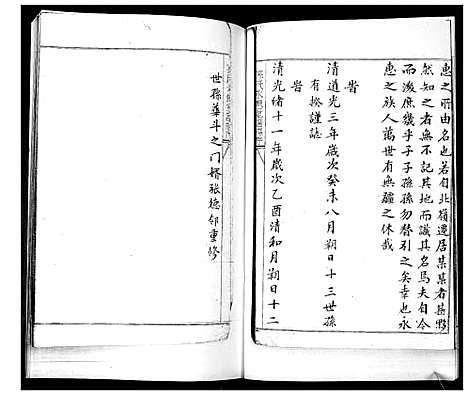 惠之所由名也若自北嶺遷居某某者甚夥
然知之者無不記其地而識其名焉夫自今
而後庶幾乎子子孫孫勿替引之矣幸也永
惠之族人萬世有無疆之休哉
旹
清道光三年歲次癸未八月朔日十三世孫
有揆謹誌
旹
清光緒十一年歲次乙酉清和月朔日十二
世孫葉斗之门婿張德邻重修